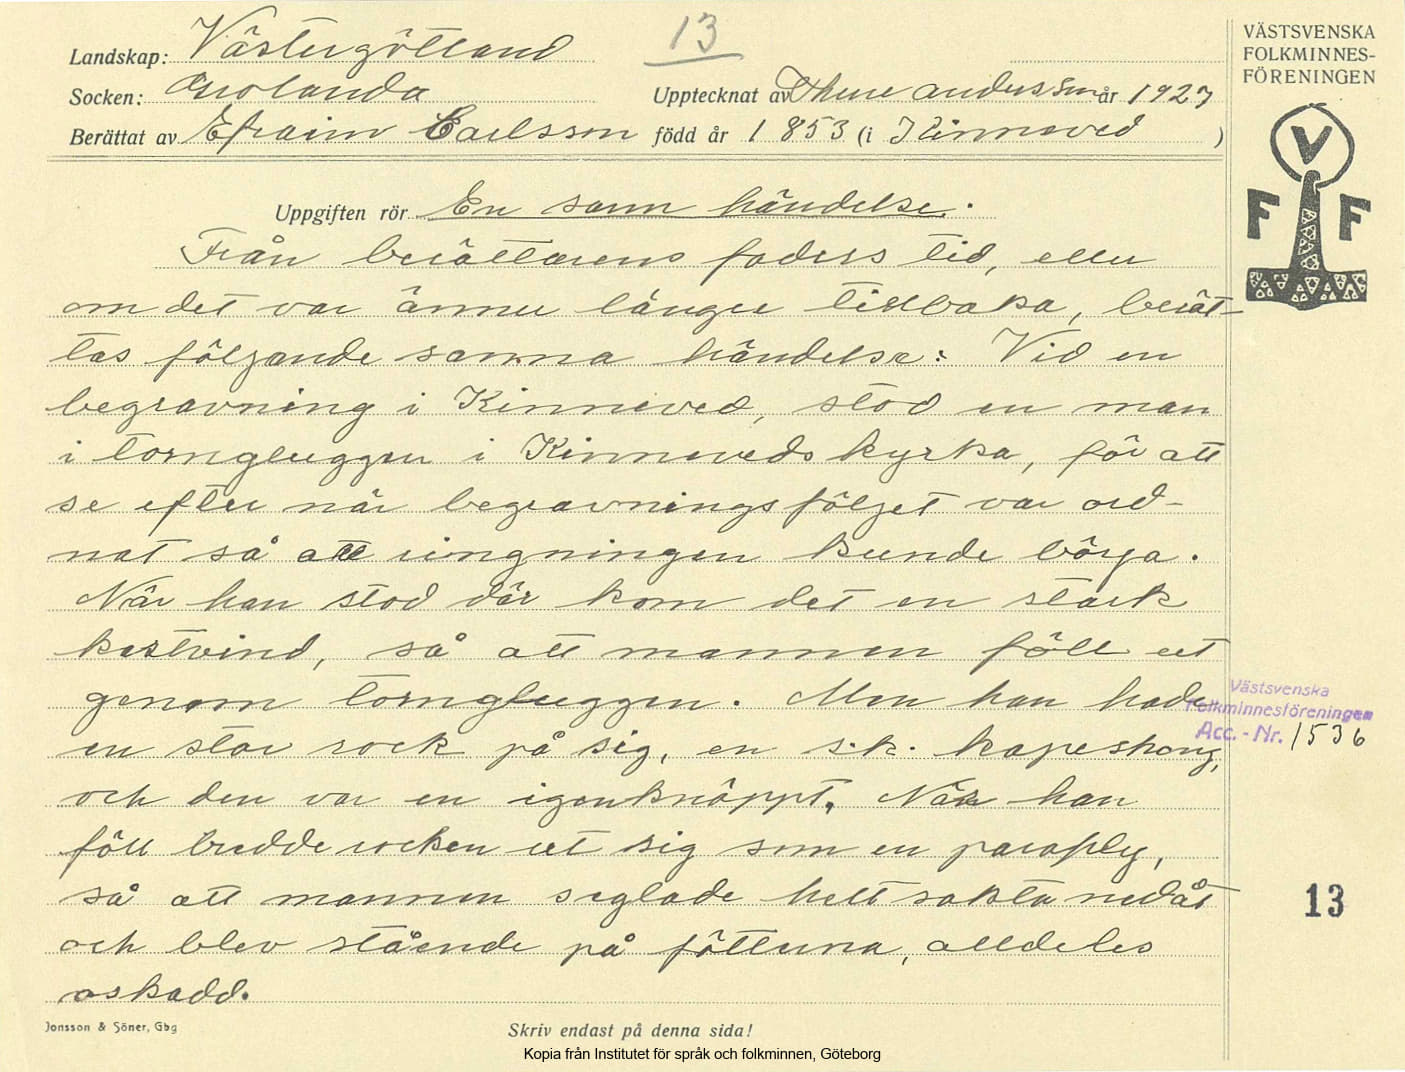 13
Landskap: Västergötland
Socken: Grolanda
Upptecknat av Thure Andersson år 1927
Berättat av Efraim Carlsson född år 1853 (i Kinneved )
VÄSTSVENSKA
FOLKMINNES-
FÖRENINGEN
V
F F
Uppgiften rör En sann händelse.
Från berättarens faders tid, eller
om det var ännu längre tillbaka, berät-
tas följande sanna händelse: Vid en
begravning i Kinneved, stod en man
i torngluggen i Kinneveds kyrka, för att
se efter när begravningsföljet var ord-
nat så att ringningen kunde börja.
När han stod där kom det en stark
kastvind, så att mannen föll ut
genom torngluggen. Men han hade
en stor rock på sig, en s.k. kapprock,
och den var en igenknäppt. När han
föll bredde rocken ut sig som en paraply,
så att mannen seglade helt sakta nedåt
och blev stående på fötterna, alldeles
oskadd.
Västsvenska
Folkminnesföreningen
Acc. - Nr. 1536
13
Jonsson & Söner, Gbg
Skriv endast på denna sida!
Kopia från Institutet för språk och folkminnen, Göteborg